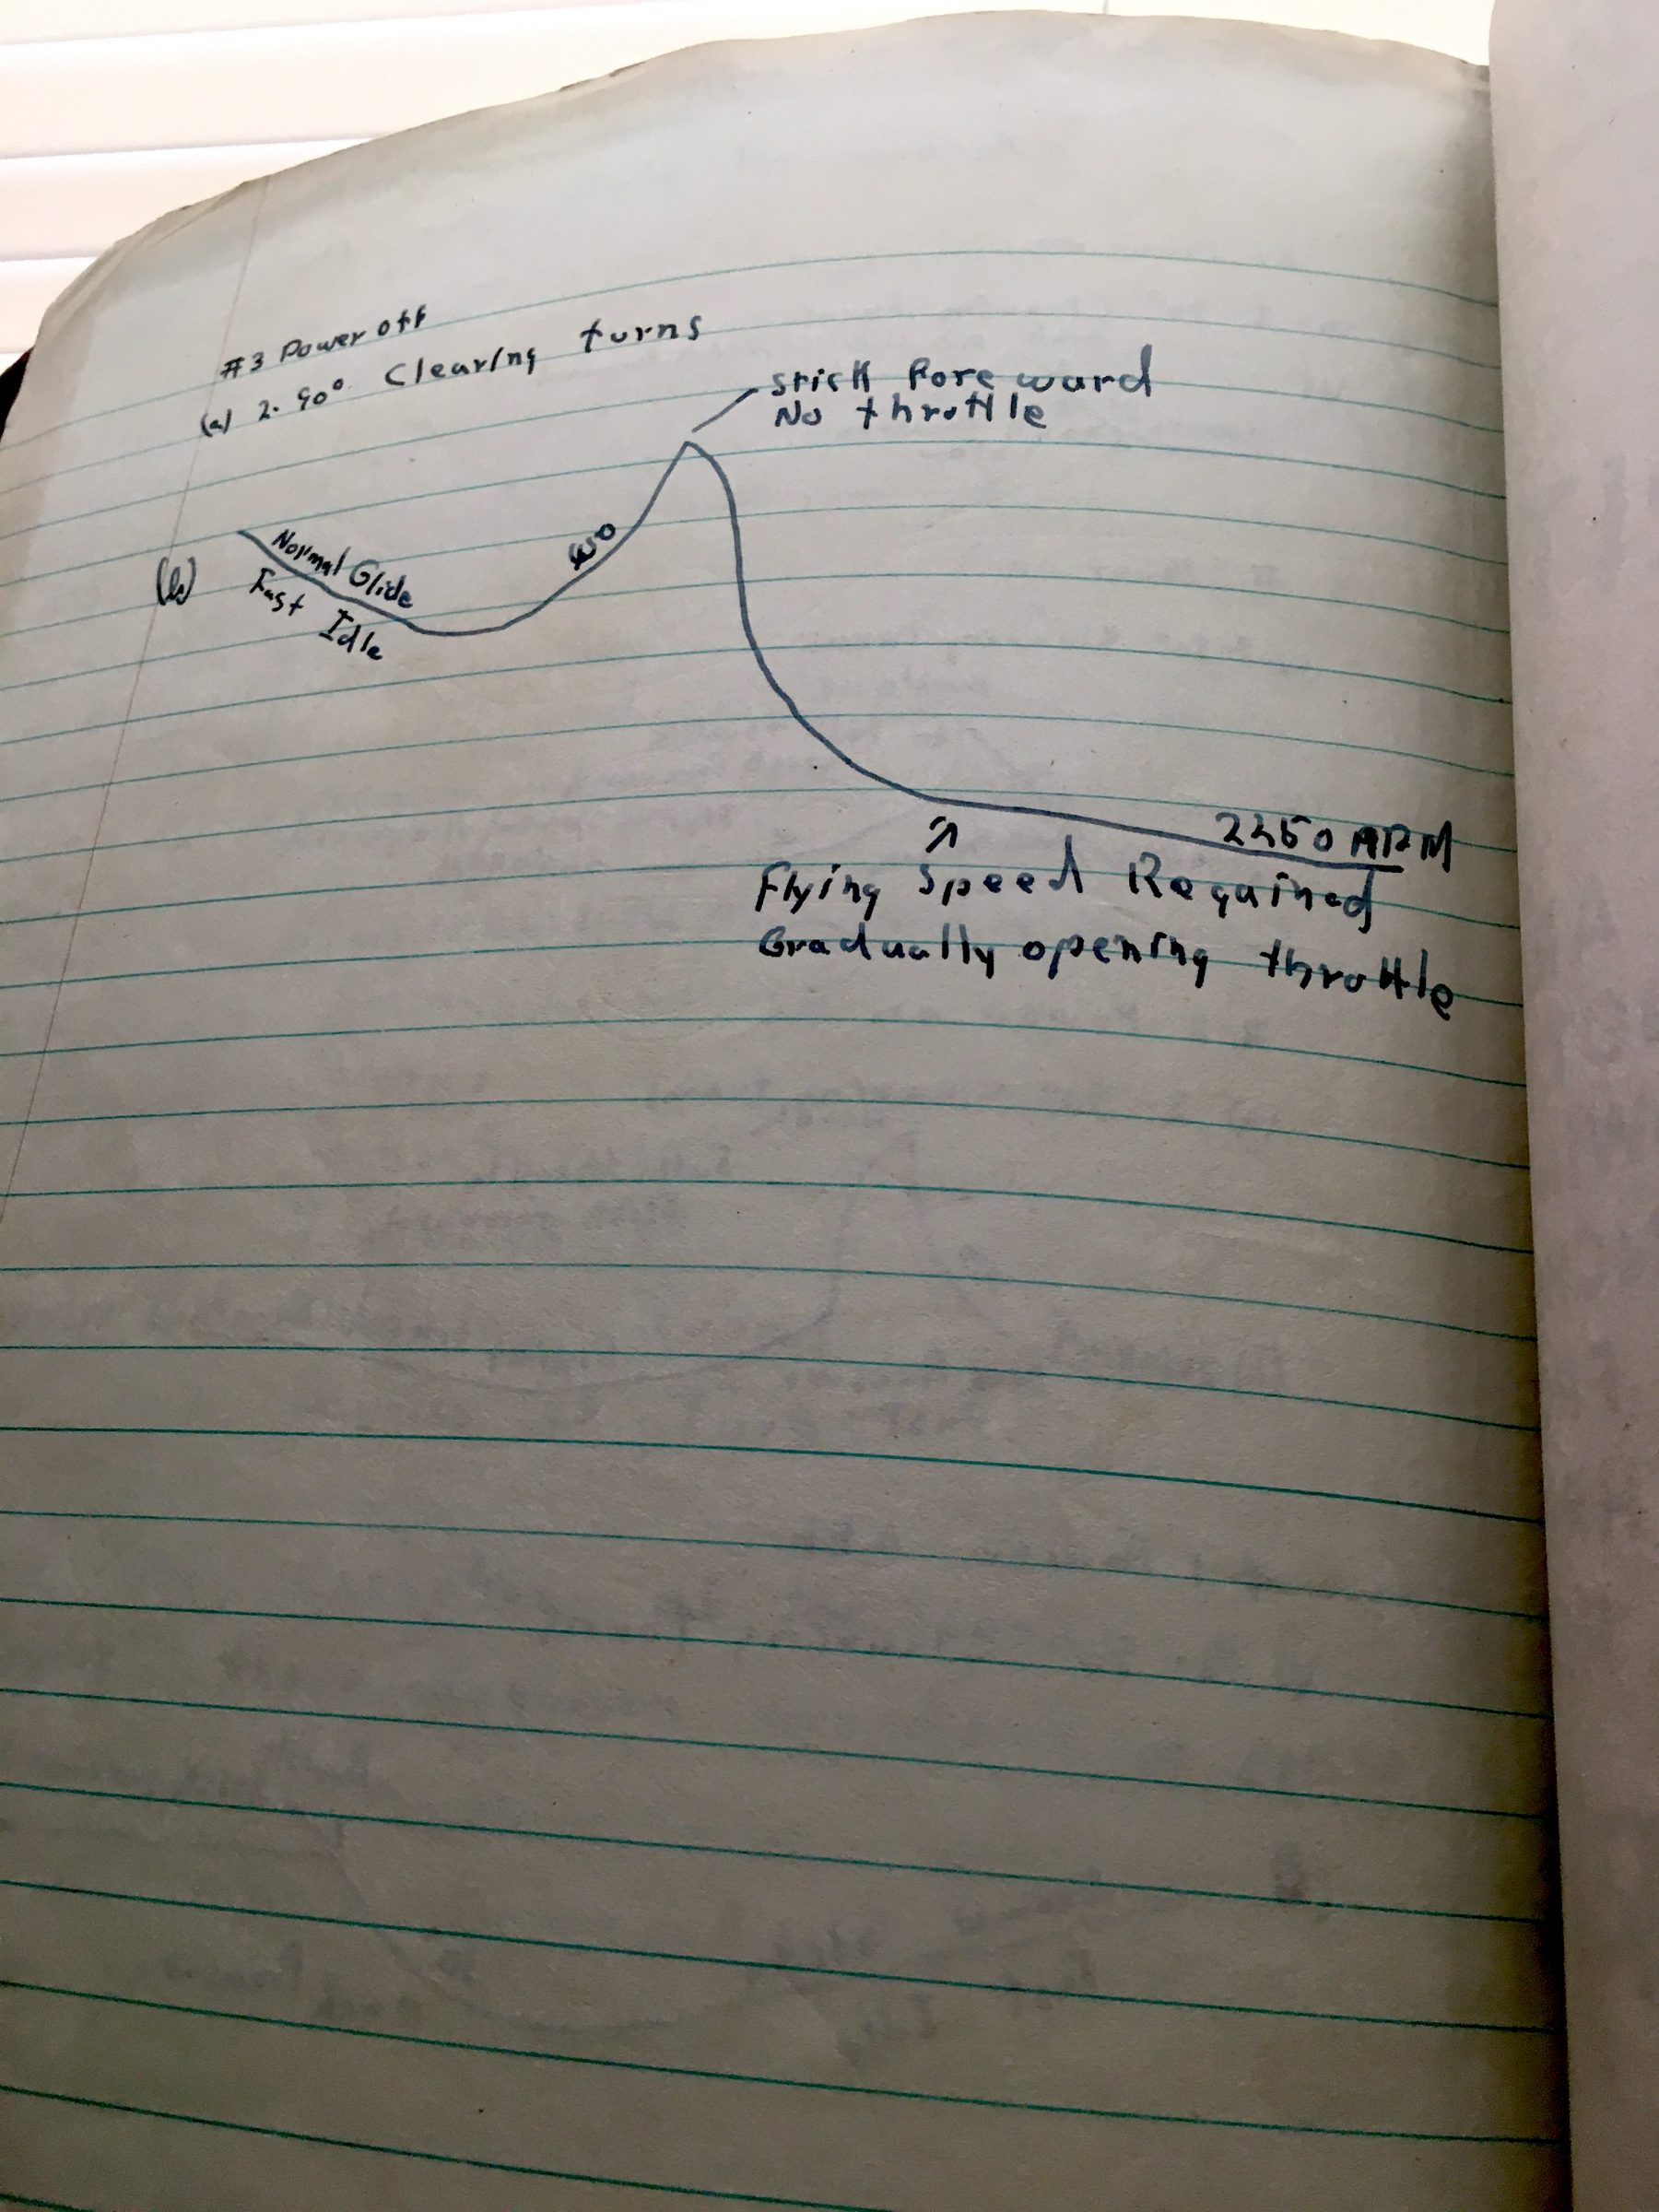 #3 Power off
(a) 2. 90° Clearing turns
stick Foreward
No throttle
(b)
Normal Glide
Fast Idle
Flying Speed Regained
Gradually opening throttle